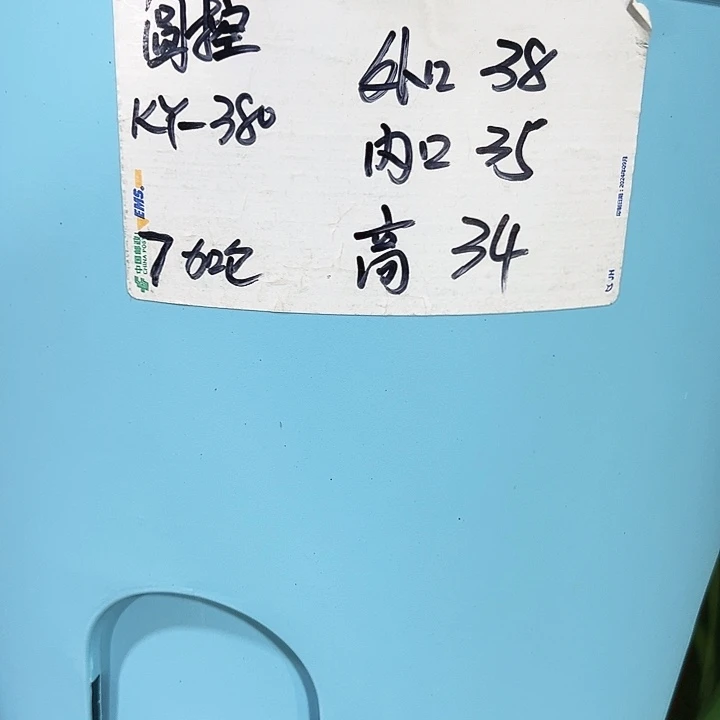 圆控
外口 38
KY-380
内口 35
高 34
EMS
中国邮政
CHINA POST